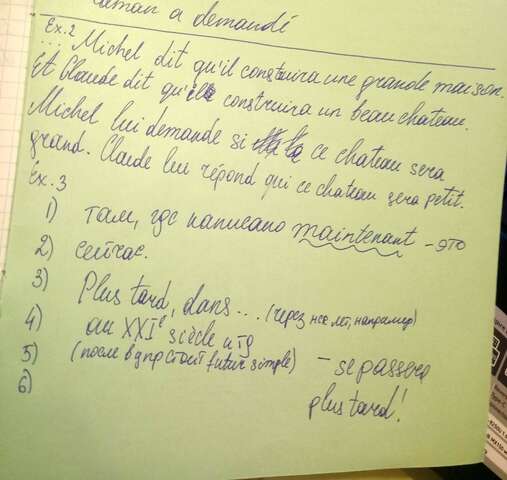 maman a demandé
Ex.2
... Michel dit qu'il construira une grande maison.
Et Claude dit qu'il construira un beau chateau.
Michel lui demande si ce chateau sera
grand. Claude lui répond qui ce chateau sera petit.
Ex.3
1) там, где написано maintenant - это
2) сейчас.
3) Plus tard, dans ... (через нск лет, например)
4) au XXIe siècle итд
5) (после в др стоит futur simple) - se passera
6) plus tard!